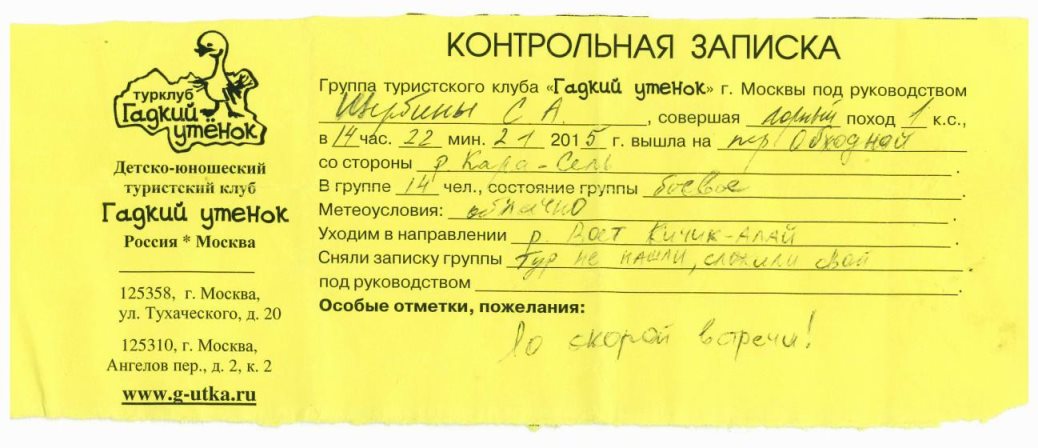 турклуб
Гадкий
утёнок
Детско-юношеский
туристский клуб
Гадкий утенок
Россия * Москва
125358, г. Москва,
ул. Тухаческого, д. 20
125310, г. Москва,
Ангелов пер., д. 2, к. 2
www.g-utka.ru
КОНТРОЛЬНАЯ ЗАПИСКА
Группа туристского клуба «Гадкий утенок» г. Москвы под руководством
Щербины С А. , совершая горный поход 1 к.с.,
в 14 час. 22 мин. 21 2015 г. вышла на пер Обходной
со стороны р. Кара-Сель .
В группе 14 чел., состояние группы боевое
Метеоусловия: облачно .
Уходим в направлении р. Вост Кичик-Алай .
Сняли записку группы Тур не нашли, сложили свой
под руководством .
Особые отметки, пожелания:
До скорой встречи!